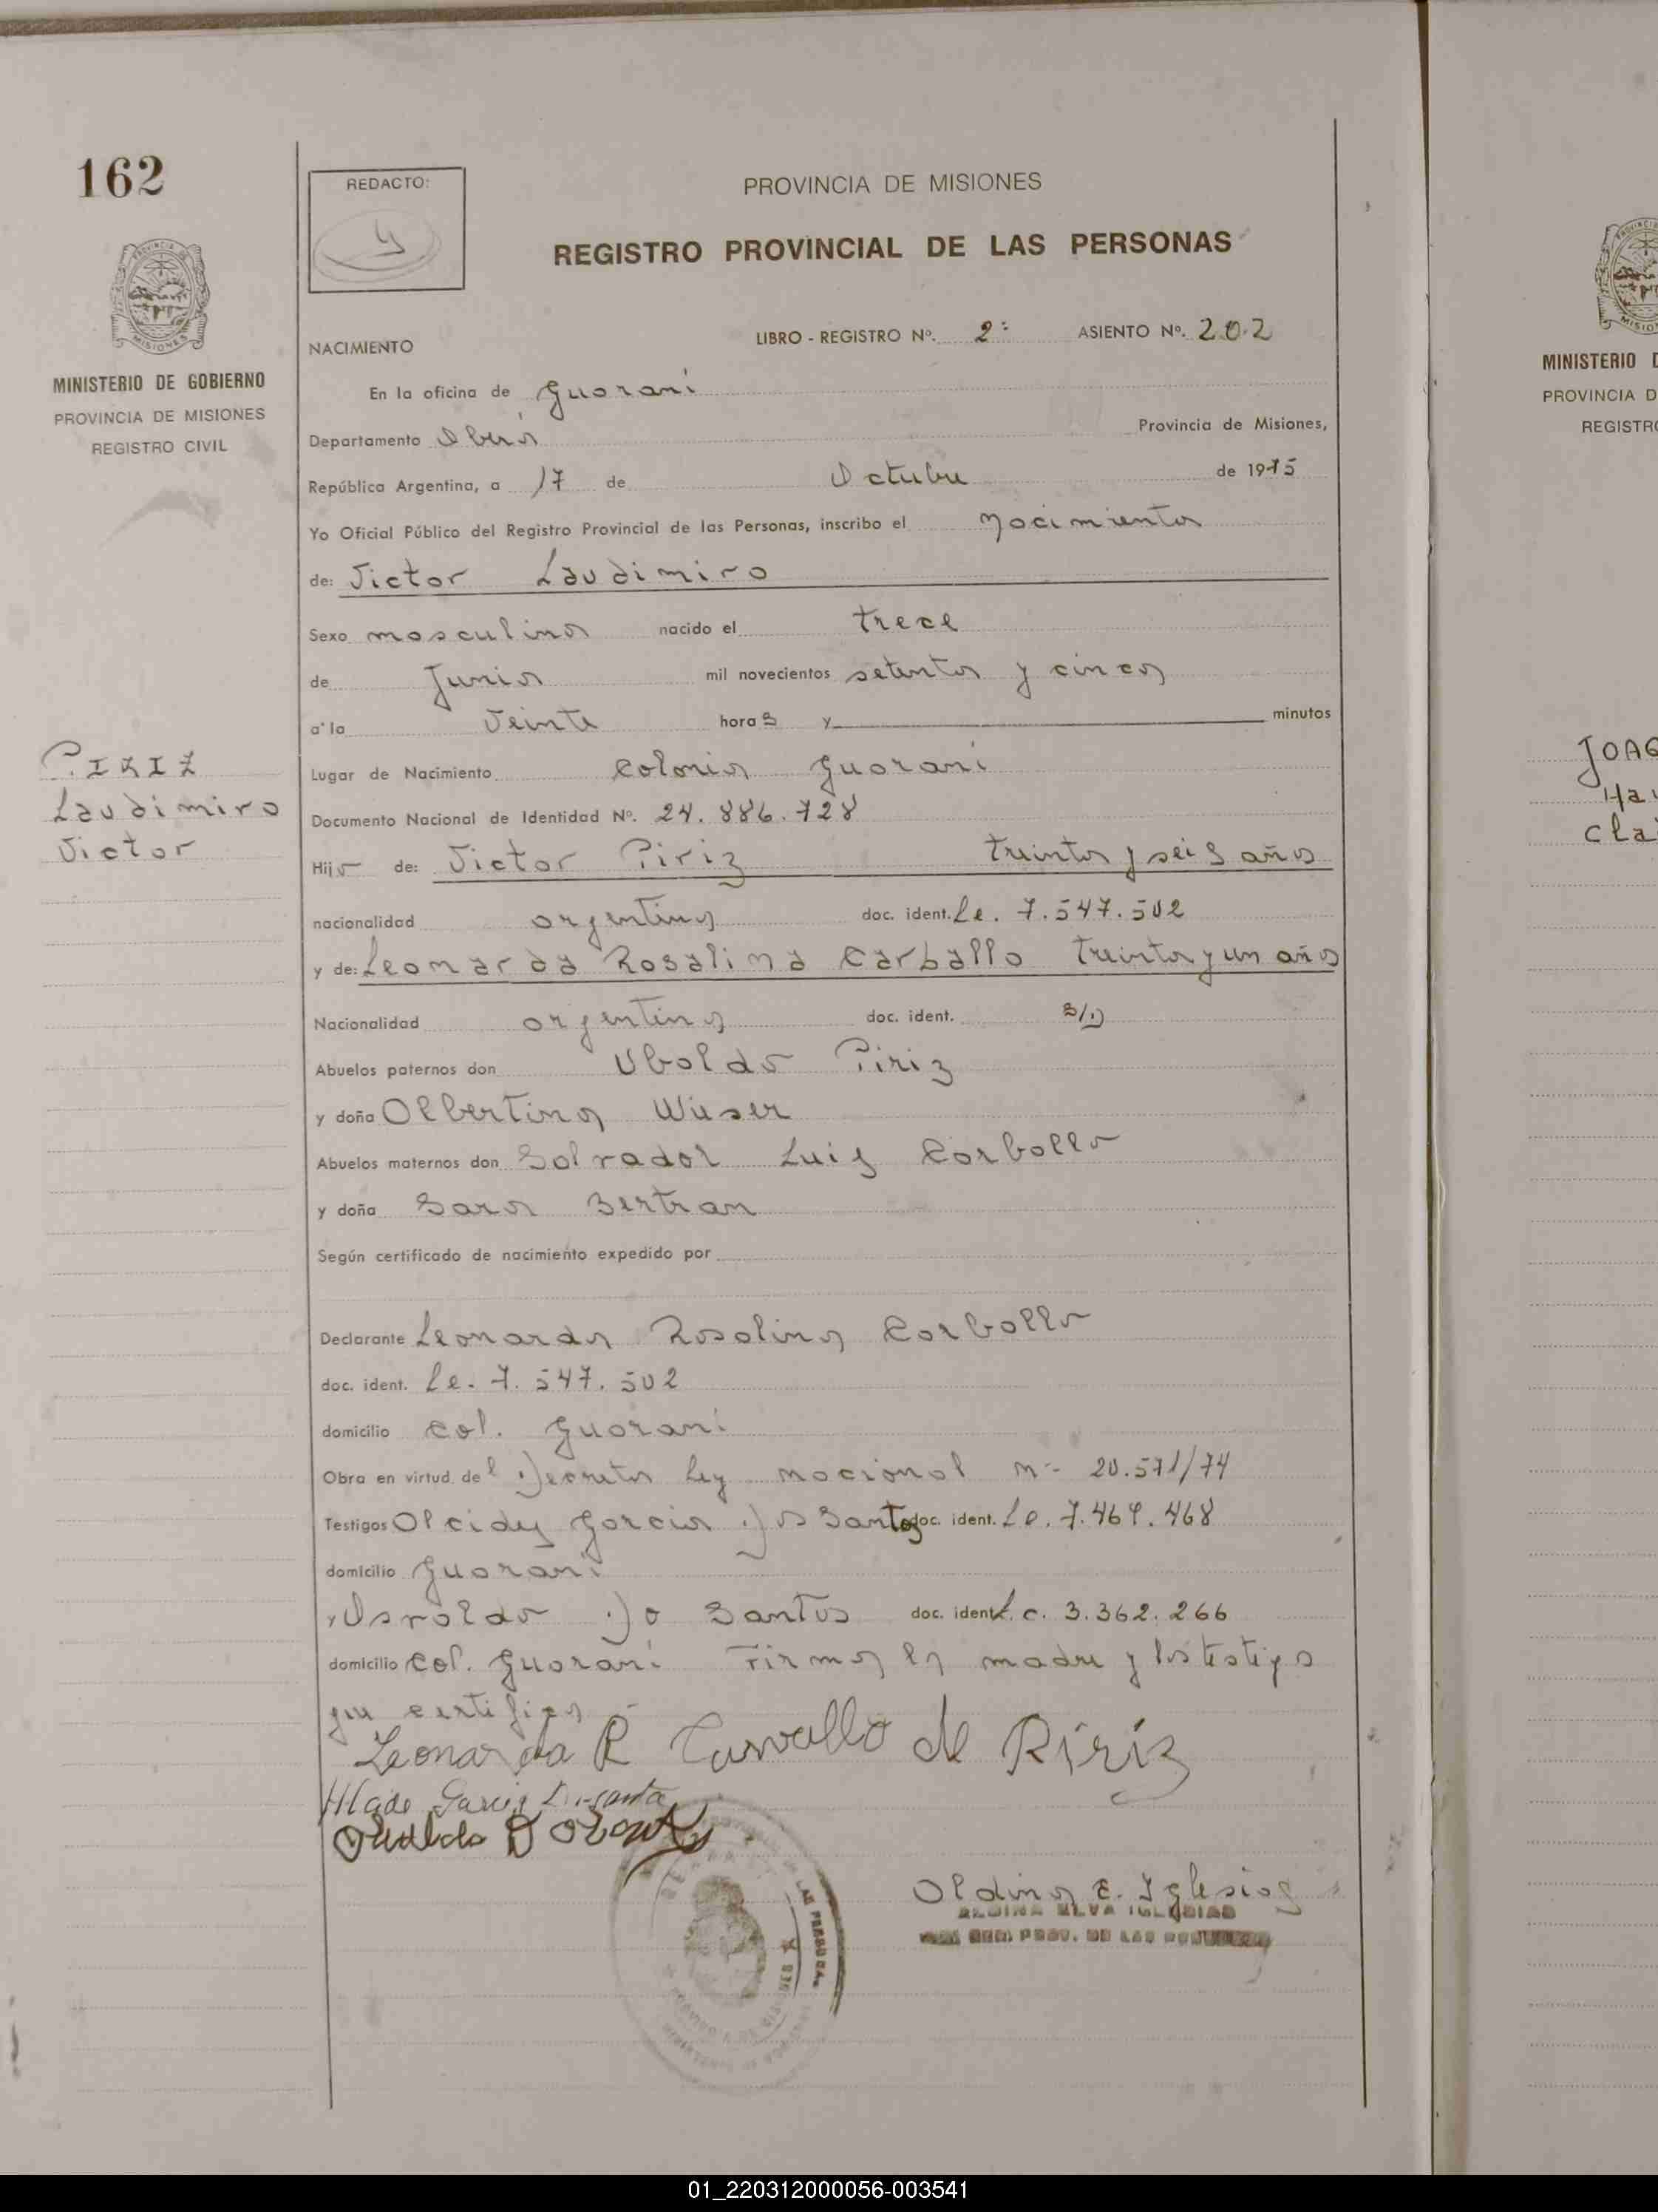 162
REDACTO:
PROVINCIA DE MISIONES
REGISTRO PROVINCIAL DE LAS PERSONAS
MINISTERIO DE GOBIERNO
PROVINCIA DE MISIONES
REGISTRO CIVIL
NACIMIENTO
LIBRO - REGISTRO Nº. 2º ASIENTO Nº. 202
En la oficina de Guaraní
Departamento Oberá Provincia de Misiones,
República Argentina, a 17 de Octubre de 1975
Yo Oficial Público del Registro Provincial de las Personas, inscribo el nacimiento
de: Victor Laudimiro
Sexo masculino nacido el trece
de Junio mil novecientos setenta y cinco
a la veinte horas y minutos
PIRIZ
Laudimiro
Victor
Lugar de Nacimiento Colonia Guaraní
Documento Nacional de Identidad Nº. 24.886.728
Hijo de: Victor Piriz treinta y seis años
nacionalidad argentina doc. ident. Le. 7.547.502
y de: Leonarda Rosalina Carballo treinta y un años
Nacionalidad argentina doc. ident. S/D
Abuelos paternos don Ubaldo Piriz
y doña Albertina
Abuelos maternos don Salvador Luis Carballo
y doña Sara Bertran
Según certificado de nacimiento expedido por
Declarante Leonarda Rosalina Carballo
doc. ident. Le. 7.547.502
domicilio Col. Guaraní
Obra en virtud del Decreto Ley nacional nº 20.571/74
Testigos Alcides Garcia Do Santos doc. ident. Le. 7.469.468
domicilio Guaraní
y Osvaldo Do Santos doc. ident. L.c. 3.362.266
domicilio Col. Guaraní Firma la madre y los testigos
que certifica
Leonarda R Carvallo de Piriz
Aldina E. Iglesias
ALDINA ELVA IGLESIAS
MINISTERIO
PROVINCIA D
REGISTR
JOAQ
Cla
01_220312000056-003541